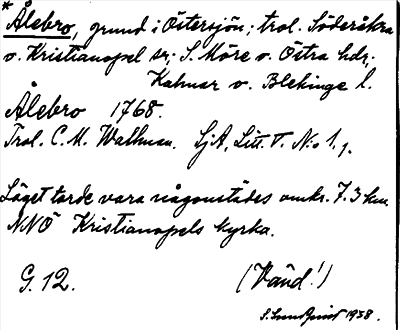 * Ålebro, grund i Östersjön; trol. Söderåkra
o. Kristianopel sr; S. Möre o. Östra hdr;
Kalmar o. Blekinge l.
Ålebro 1768.
Trol. C. M. Wallman. SjA, Litt. T. N:o 1.
Läget torde vara någonstädes omkr. 7.3 km.
NNÖ Kristianopels kyrka.
G. 12. (Vänd!)
S. Lundquist 1938.